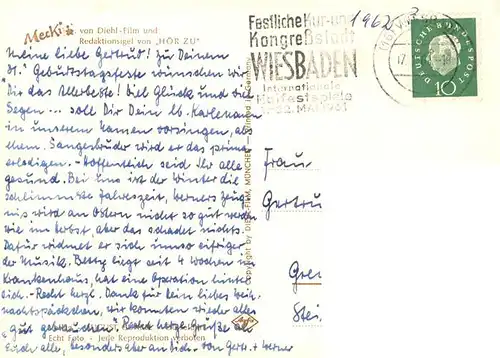 Mecki von Diehl-Film und
Redaktionsigel von „HÖR ZU"
Meine liebe Gertrud! Zu Deinem
Gebürtstagsfeste wünschen wir
Dir das Allerbeste! Viel Glück und viel
Segen... soll Dir Dein lb. Karlemann
in unserem Namen vorsingen, als
ehem. Sangesbruder wird er das prima
erledigen. - Hoffentlich seid Ihr alle
gesund. Bei uns ist der Winter die
schlimmste Jahreszeit, Werners Zeug-
nis wird an Ostern nicht so gut werden
wie im Herbst, aber das schadet nichts.
Dafür widmet er sich umso eifriger
der Musik. Betty liegt seit 4 Wochen im
Krankenhaus, hat eine Operation hinter
sich. - Recht herzl. Dank für Dein liebes Weih-
nachtspäckchen, wir konnten wieder alles
"gut gebrauchen". Recht herzl. Grüße an
Euch alle, besonders aber an Dich. von Gertr. + Werner
Echt Foto - Jede Reproduktion verboten
Copyright by DIEHL-FILM, MÜNCHEN - Printed in Germany
Agfa
1962
Festliche Kur- und
Kongreßstadt
WIESBADEN
Internationale
Maifestspiele
22. MAI 1961
17
DEUTSCHE BUNDESPOST
10
Frau
Gertru